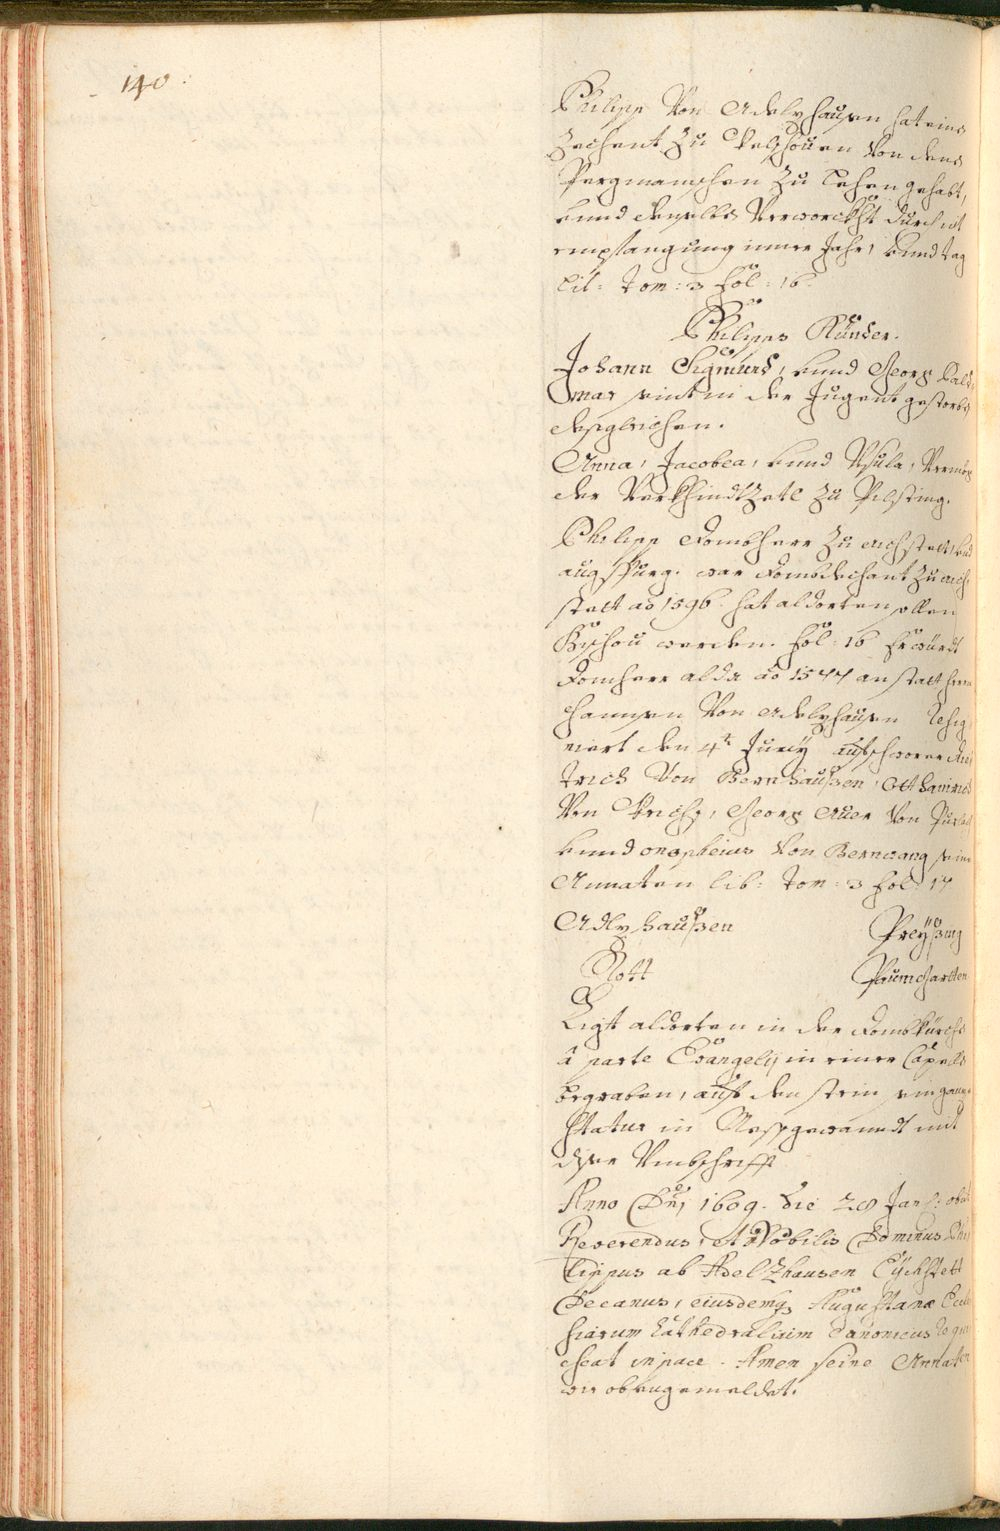 140.
Philipp Von Adelzhausen hat eine
Zechent Zu Pelzhouen Von denen
Pergmanschen Zu Lehen gehabt,
vnnd denselbs Verworckht durch nit
empfangung inner Jahr, vnnd tag
Lit: Tom: 3 fol: 16
Philipps Künder.
Johann Sigmund, vnnd Georg Bald
mar seint in der Jugent gestorben
desgleichen.
Anna, Jacobea, vnnd Vrsula, Vermög
der Verkhindtzetl Zu Pilsting.
Philipp Dombherr Zu Aichstett, vnd
augspurg. war Dombdechant Zu aich
stett ao 1596. hat aldorten sollen
Bischou werden. fol: 16 Er würdt
Domherr alda ao 1577 an statt herrn
Hannsen Von Adelzhausen Resig
niert den 4t Juny aufschworer Die
trich Von Bernhaußen, Ott Hainrich
Von Georg Auer Von
vnnd onopheius Von Bernwang seine
Annaten lib: Tom: 3 fol: 17
Adlzhaußen Preyßing
Rott Paumgartten
Ligt aldorten in der Dombkürch
à parte Euangelij in einer Capelln
begraben, auf den stein sein ganze
Statur in Messgewandt mit
diser Vmbschrifft
Anno Dnj 1609. die 28 Jan: obijt
Reverendus, et Nobilis Dominus Phi
lippus ab Adelzhausen Eychstett
Decanus, eiusdemq Augustanæ Eccle
siarum Cathedralium Canonicus Requi
escat in pace. Amen seine Annaten
wie obengemeldet.